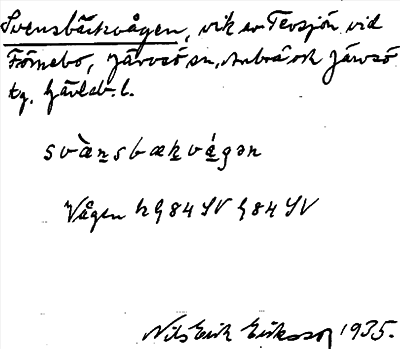 Svensbäckvågen, vik av Tevsjön vid
Förnebo, Järvsö sn, Arbrå och Järvsö
tg. Gävleb. l.
svä̀nsbækvágən
Vågen h G84 SV G84 SV
Nils Erik Eriksson 1935.